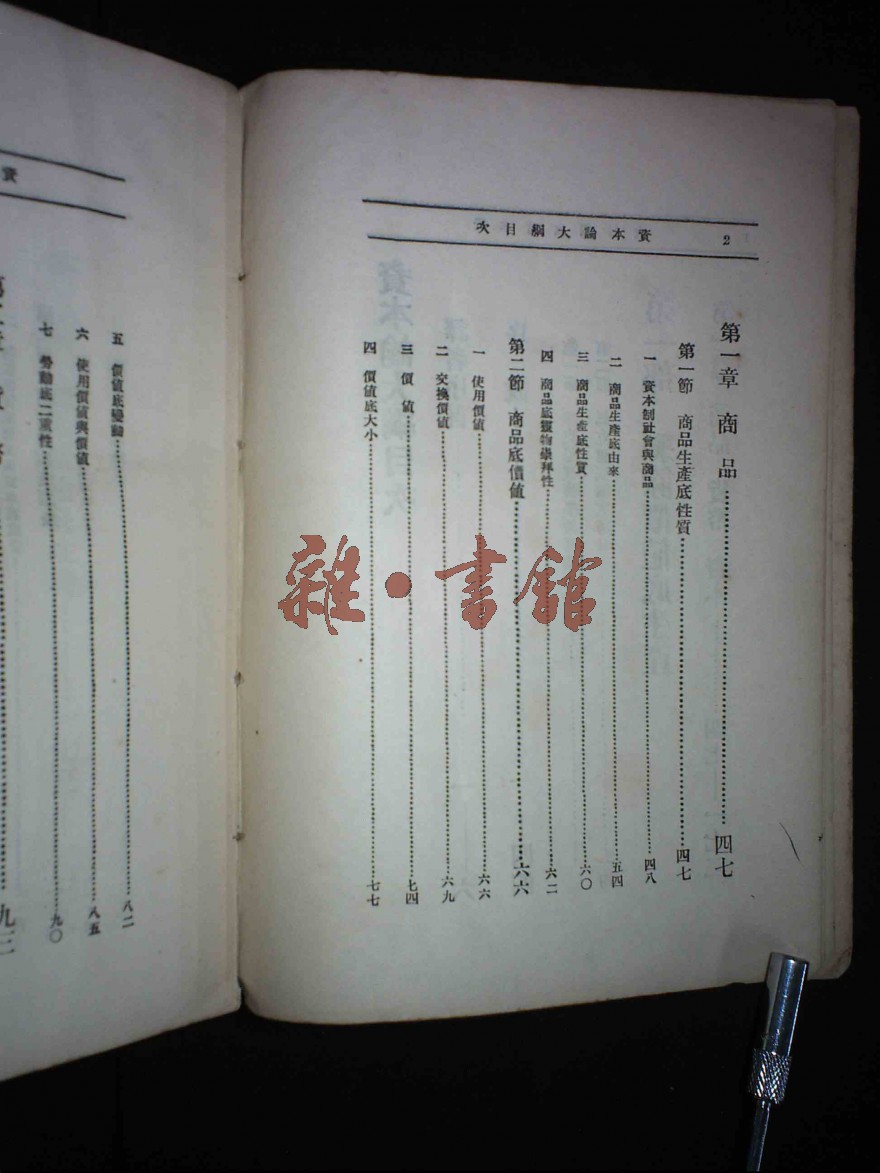 資本論大綱目次 2
第一章 商品……四七
第一節 商品生產底性質……四七
一 資本制社會與商品……四八
二 商品生產底由來……五四
三 商品生產底性質……六〇
四 商品底靈物崇拜性……六二
第二節 商品底價値……六六
一 使用價値……六六
二 交換價値……六九
三 價値……七四
四 價値底大小……七七
資
五 價値底變動……八二
六 使用價値與價値……八五
七 勞動底二重性……九〇
九三
雜·書館